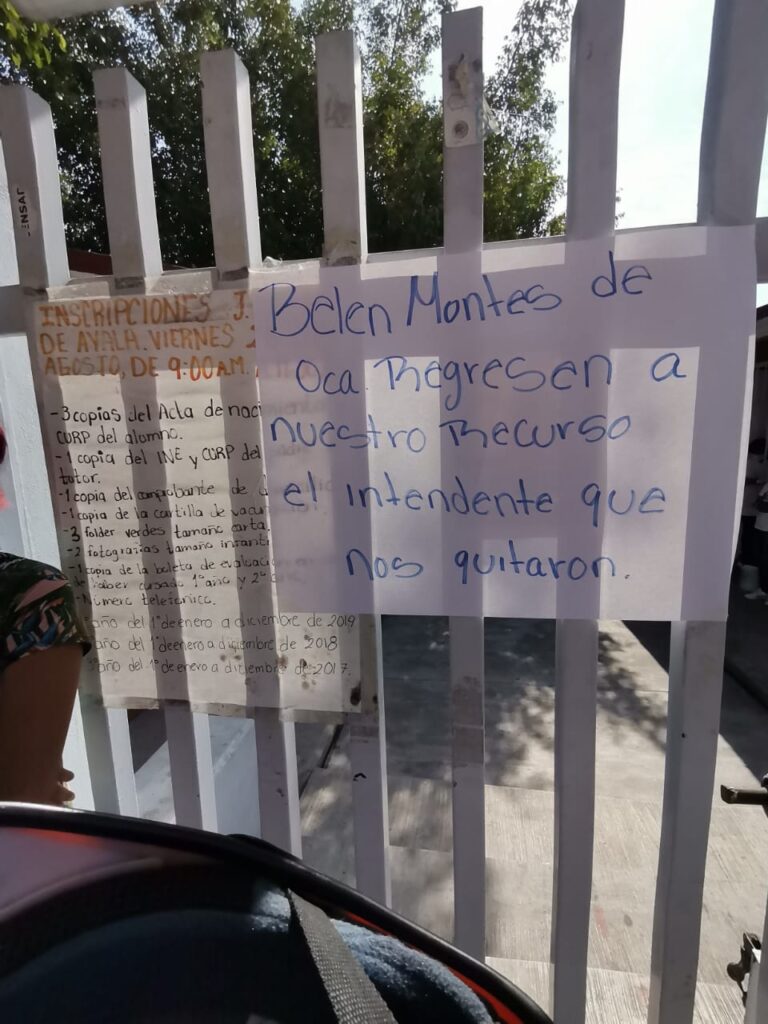 INSCRIPCIONES J.
DE AYALA. VIERNES
AGOSTO, DE 9:00 AM.
-3 copias del Acta de naci
CURP del alumno.
-1 copia del INE y CURP del
tutor.
-1 copia del comprobante de
-1 copia de la cartilla de vacun
-3 folder verdes tamaño carta.
-2 fotografias tamaño infant
-1 copia de la boleta de evaluació
de haber cursado 1° año y 2°
-Número telefonico.
año del 1° de enero a diciembre de 2019
año del 1° de enero a diciembre de 2018
3° año del 1° de enero a diciembre de 2017.
Belen Montes de
Oca. Regresen a
nuestro Recurso
el intendente que
nos quitaron.